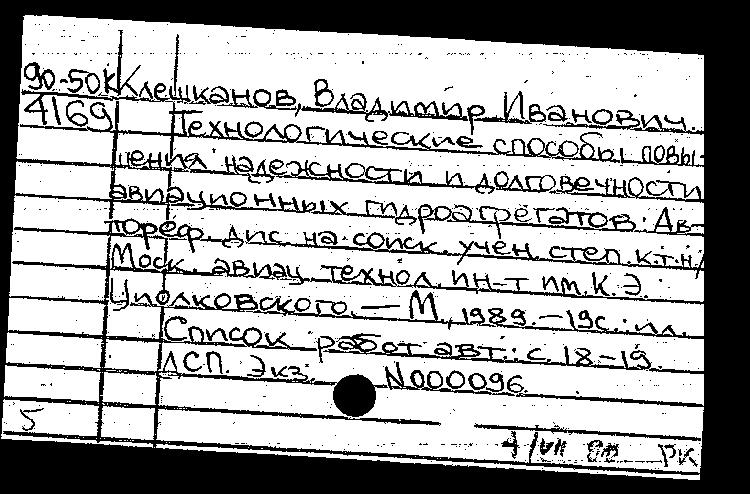 90-50К Клешканов, Владимир Иванович.
4169 Технологические способы повы-
шения надежности и долговечности
авиационных гидроагрегатов: Ав-
тореф. дис. на соиск. учен. степ. к.т.н/
Моск. авиац. технол. ин-т им. К. Э.
Циолковского. — М., 1989. — 19с.: ил.
Список работ авт.: с. 18-19.
ДСП. Экз. N000096
5
4/VII РК